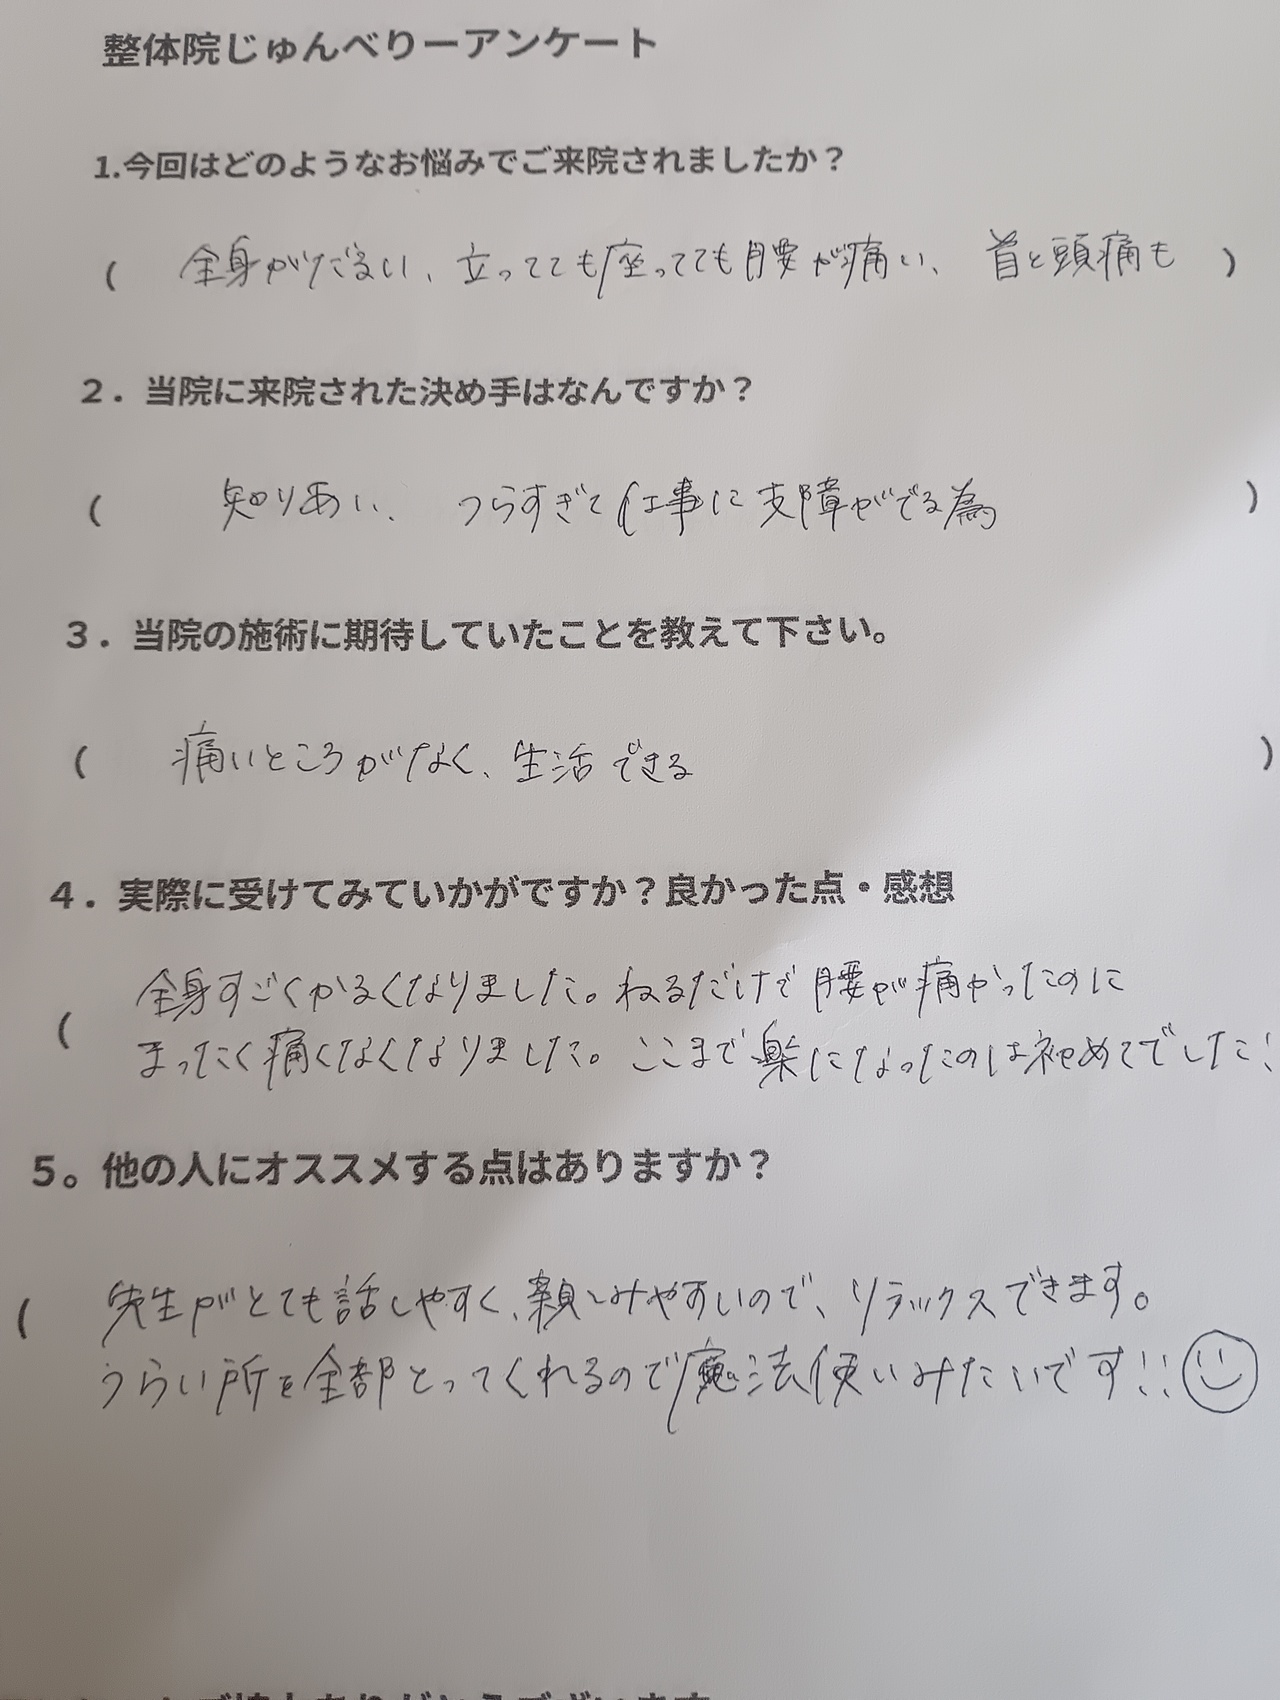 整体院じゅんべりーアンケート
1.今回はどのようなお悩みでご来院されましたか？
( 全身がだるい、立ってても座ってても腰が痛い、首と頭痛も )
２．当院に来院された決め手はなんですか？
( 知りあい、つらすぎて仕事に支障がでる為 )
３．当院の施術に期待していたことを教えて下さい。
( 痛いところがなく、生活できる )
４．実際に受けてみていかがですか？良かった点・感想
( 全身すごくかるくなりました。ねるだけで腰が痛かったのに
まったく痛くなくなりました。ここまで楽になったのは初めてでした！
５。他の人にオススメする点はありますか？
( 先生がとても話しやすく、親しみやすいので、リラックスできます。
うらい所を全部とってくれるので魔法使いみたいです!!